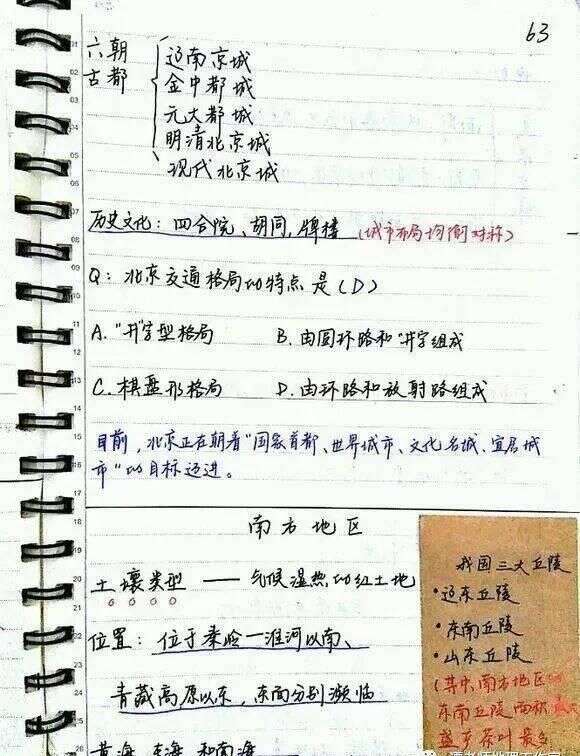 63
六朝古都
辽南京城
金中都城
元大都城
明清北京城
现代北京城
历史文化：四合院、胡同、牌楼（城市布局均衡对称）
Q：北京交通格局的特点是（D）
A. "井"字型格局 B. 由圆环路和"井"字组成
C. 棋盘形格局 D. 由环路和放射路组成
目前，北京正在朝着"国家首都、世界城市、文化名城、宜居城
市"的目标迈进。
南方地区
土壤类型 —— 气候湿热的红土地
位置：位于秦岭—淮河以南、
青藏高原以东，东面分别濒临
黄海、东海和南海
我国三大丘陵
·辽东丘陵
·东南丘陵
·山东丘陵
（其中，南方地区的
东南丘陵面积最大